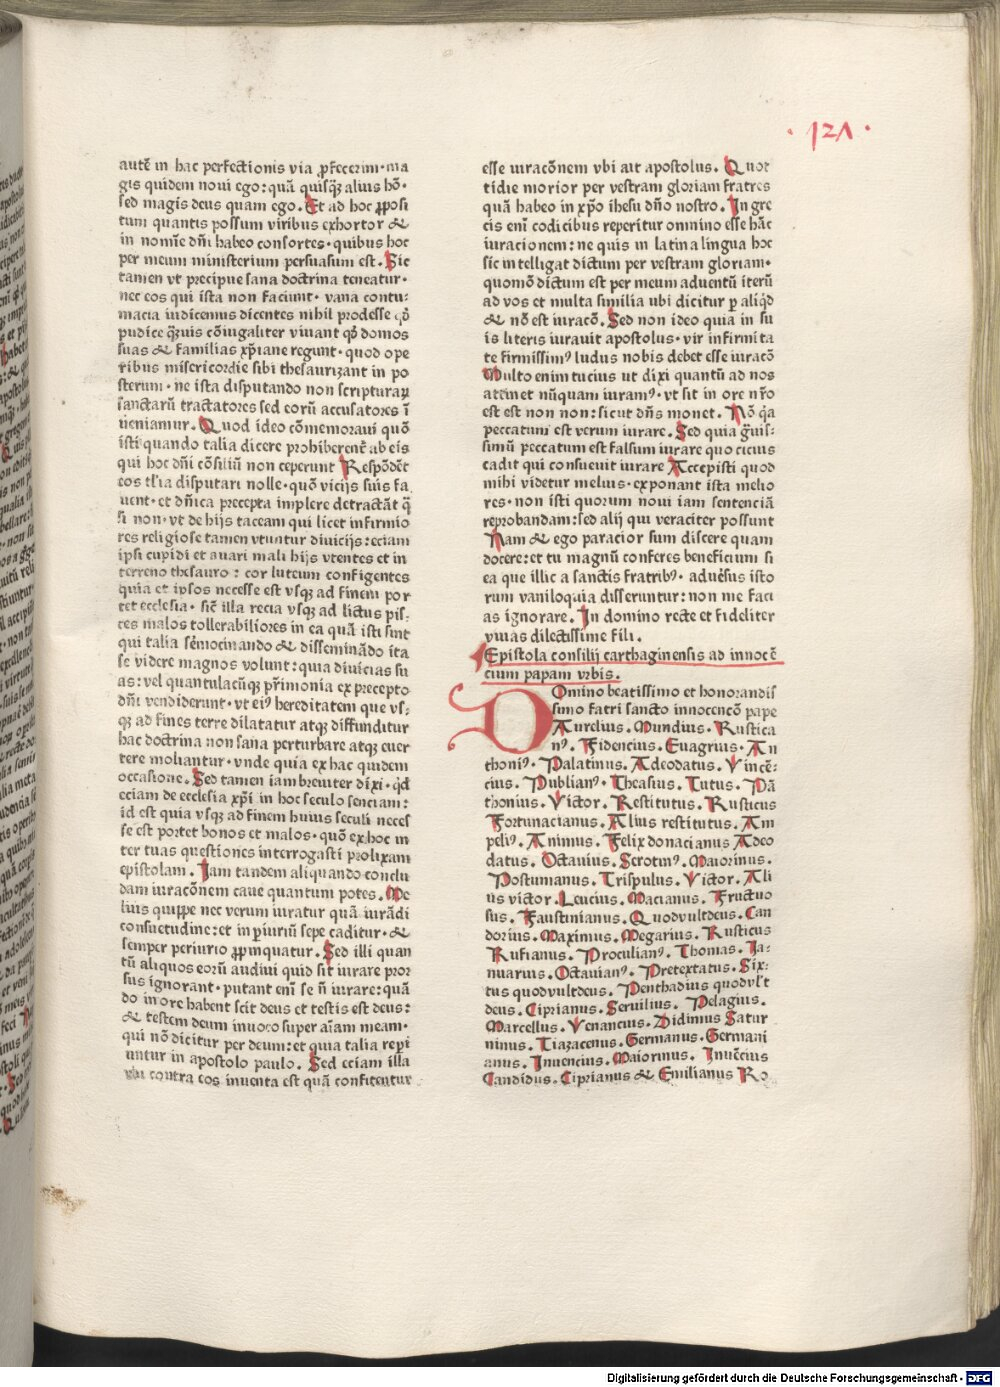 · 121 ·
autē in hac perfectionis via ꝓfecerim·ma
gis quidem noui ego: quā quisqʒ alius hō·
sed magis deus quam ego. Et ad hoc ꝓposi
tum quantis possum viribus exhortor &
in nomīe dñi habeo consortes· quibus hoc
per meum ministerium persuasum est. Sic
tamen vt precipue sana doctrina teneatur·
nec eos qui ista non faciunt· vana contu-
macia iudicemus dicentes nihil prodesse qð
pudice q̃uis cōiugaliter viuant qð domos
suas & familias xp̄iane regunt· quod ope
ribus misericordie sibi thesaurizant in po
sterum· ne ista disputando non scripturaꝝ
sanctarū tractatores sed eorū accusatores ī
ueniamur. Quod ideo cōmemoraui quō
isti quando talia dicere prohiberent᷑ ab eis
qui hoc dñi cōsiliū non ceperunt Respōdēt
eos tl'ia disputari nolle· quō vicijs suis fa
uent· et dñica precepta implere detractāt q̄
si non· vt de hijs taceam qui licet infirmio
res religiose tamen vtuntur diuicijs: eciam
ipsi cupidi et auari mali hijs vtentes et in
terreno thesauro: cor luteum configentes
quia et ipsos necesse est vsqʒ ad finem por
tet ecclesia· sic̄ illa recia vsqʒ ad lictus pis-
ces malos tollerabiliores in ea quā isti sunt
qui talia sēmocinando & disseminādo ita
se videre magnos volunt: quia diuicias su
as: vel quantulacūqʒ pr̄imonia ex precepto
dñi vendiderunt· vt ei⁹ hereditatem que vs-
qʒ ad fines terre dilatatur atqʒ diffunditur
hac doctrina non sana perturbare atqʒ euer
tere moliantur· vnde quia ex hac quidem
occasione. Sed tamen iam breuiter dixi· qð
eciam de ecclesia xp̄i in hoc seculo senciam:
id est quia vsqʒ ad finem huius seculi neces
se est portet bonos et malos· quō ex hoc in
ter tuas questiones interrogasti prolixam
epistolam. Iam tandem aliquando conclu
dam iuracōnem caue quantum potes. Me
lius quippe nec verum iuratur quā iurādi
consuetudine: et in ꝑiuriū sepe caditur· &
semper periurio ꝓpinquatur. Sed illi quan
tū aliquos eorū audiui quid sit iurare pror
sus ignorant· putant enī se n̄ iurare: quā
do in ore habent scit deus et testis est deus:
& testem deum inuoco super aīam meam·
qui nō dicitur per deum: et quia talia reperi
untur in apostolo paulo. Sed eciam illa
vbi contra eos inuenta est quā confitentur
esse iuracōnem vbi ait apostolus. Quot
tidie morior per vestram gloriam fratres
quā habeo in xp̄o ihesu dño nostro. In gre
cis enī codicibus reperitur omnino esse hāc
iuracionem: ne quis in latina lingua hoc
sic intelligat dictum per vestram gloriam·
quomō dictum est per meum aduentū iterū
ad vos et multa similia ubi dicitur ꝑ aliqð
& nō est iuracō. Sed non ideo quia in su
is literis iurauit apostolus· vir in firmita
te firmissim⁹ ludus nobis debet esse iuracō
Multo enim tucius ut dixi quantū ad nos
atemet nūquam iuram⁹· vt sit in ore nr̄o
est est non non: sicut dñs monet. Nō q̇a
peccatum est verum iurare. Sed quia ḡuis-
simū peccatum est falsum iurare quo cicius
cadit qui consueuit iurare Accepisti quod
mihi videtur melius· exponant ista melio
res· non isti quorum noui iam sentenciā
reprobandam: sed alij qui veraciter possunt
Nam & ego paracior sum discere quam
docere: et tu magnū conferes beneficium si
ea que illic a sanctis fratrib⁹· aduēsus isto
rum vaniloquia disseruntur: non me faci
as ignorare. In domino recte et fideliter
viuas dilectissime fili.
Epistola consilij carthaginensis ad innocē
cium papam vrbis.
Domino beatissimo et honorandis
simo fatri sancto innocencō pape
Aurelius. Mundius. Rustica
n⁹. Fidencius. Euagrius. An
thoni⁹. Palatinus. Adeodatus. Vincē-
cius. Publian⁹. Theasius. Tutus. Pā
thonius. Victor. Restitutus. Rusticus
Fortunacianus. Alius restitutus. Am
peli⁹. Animus. Felix donacianus Adeo
datus. Octauius. Scrotin⁹. Maiorinus.
Postumanus. Trispulus. Victor. Ali
us victor. Leucius. Macianus. Fructuo
sus. Faustinianus. Quodvultdeus. Can
dorius. Maximus. Megarius. Rusticus
Rufianus. Proculian⁹. Thomas. Ia-
nuarius. Octauian⁹. Pretextatus. Six-
tus quodvultdeus. Penthadius quodvl't
deus. Ciprianus. Seruilius. Pelagius.
Marcellus. Venancius. Didimus Satur
ninus. Tiazacenus. Germanus. Germani
anus. Inuencius. Maiorinus. Inuēcius
Candidus. Ciprianus & Emilianus Ro
Digitalisierung gefördert durch die Deutsche Forschungsgemeinschaft - DFG